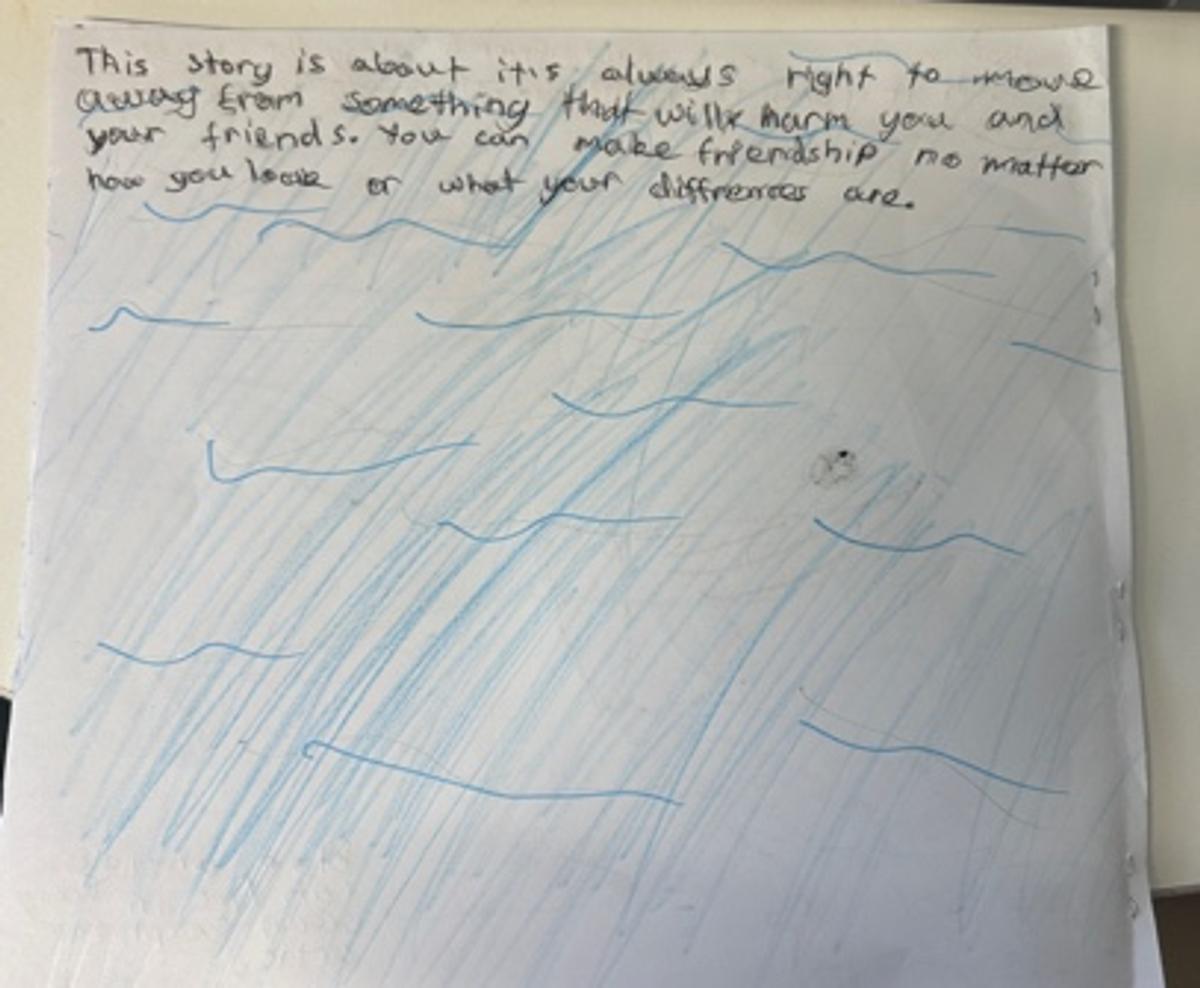 This story is about it's always right to move
away from something that will harm you and
your friends. You can make friendship no matter
how you look or what your diffrences are.